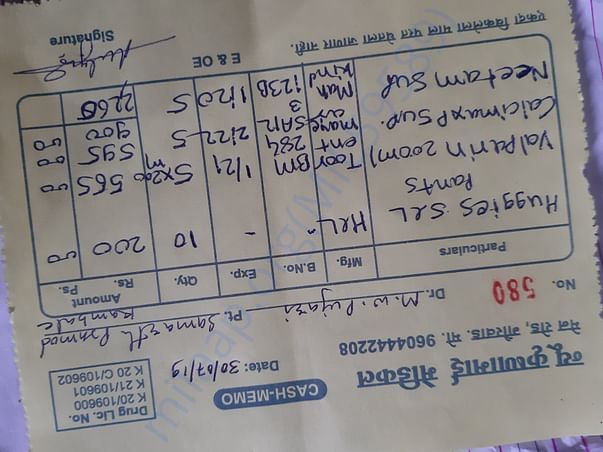 न्यू कृष्णामाई मेडिकल
मेन रोड, मो. 9604442208
CASH-MEMO
Drug Lic. No.
K 20/109600
K 21/109601
K 20 C/109602
Date: 30/07/19
No. 580
Dr. M.W. Pujari Pt. Samarth Pramod Kamble
Particulars Mfg. B.No. Exp. Qty. Amount Rs. Ps.
Huggies Pants HRL - - 10 200 00
Valparin 200m) Torrent 1/21 5x200m 565 00
Calcimax P Sup. 284 2/22 5 595 00
Neetam Sup Mankind 123B 1/20 5 900 00
2260
E & OE
Signature
एकदा विकलेला माल परत घेतला जाणार नाही.